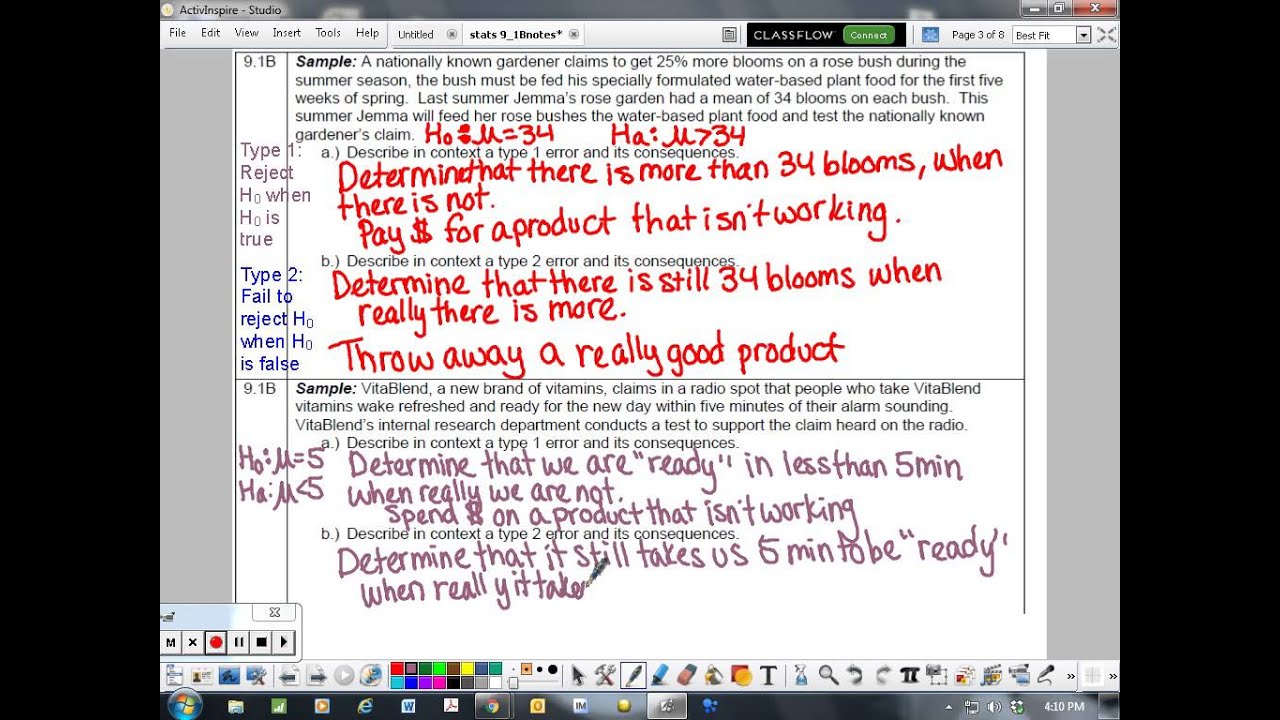 ActivInspire - Studio
File Edit View Insert Tools Help
Untitled stats 9_1Bnotes*
CLASSFLOW Connect
Page 3 of 8 Best Fit
9.1B Sample: A nationally known gardener claims to get 25% more blooms on a rose bush during the
summer season, the bush must be fed his specially formulated water-based plant food for the first five
weeks of spring. Last summer Jemma's rose garden had a mean of 34 blooms on each bush. This
summer Jemma will feed her rose bushes the water-based plant food and test the nationally known
gardener's claim. Ho: μ=34 Ha: μ>34
Type 1:
Reject
H₀ when
H₀ is
true
a.) Describe in context a type 1 error and its consequences.
Determine that there is more than 34 blooms, when
there is not.
Pay $ for a product that isn't working.
b.) Describe in context a type 2 error and its consequences.
Type 2:
Fail to
reject H₀
when H₀
is false
Determine that there is still 34 blooms when
really there is more.
Throw away a really good product
9.1B Sample: VitaBlend, a new brand of vitamins, claims in a radio spot that people who take VitaBlend
vitamins wake refreshed and ready for the new day within five minutes of their alarm sounding.
VitaBlend's internal research department conducts a test to support the claim heard on the radio.
a.) Describe in context a type 1 error and its consequences.
Ho: μ=5
Ha: μ<5
Determine that we are "ready" in less than 5min
when really we are not.
Spend $ on a product that isn't working
b.) Describe in context a type 2 error and its consequences.
Determine that it still takes us 5 min to be "ready"
when really it take
M
T
W
IM
4:10 PM